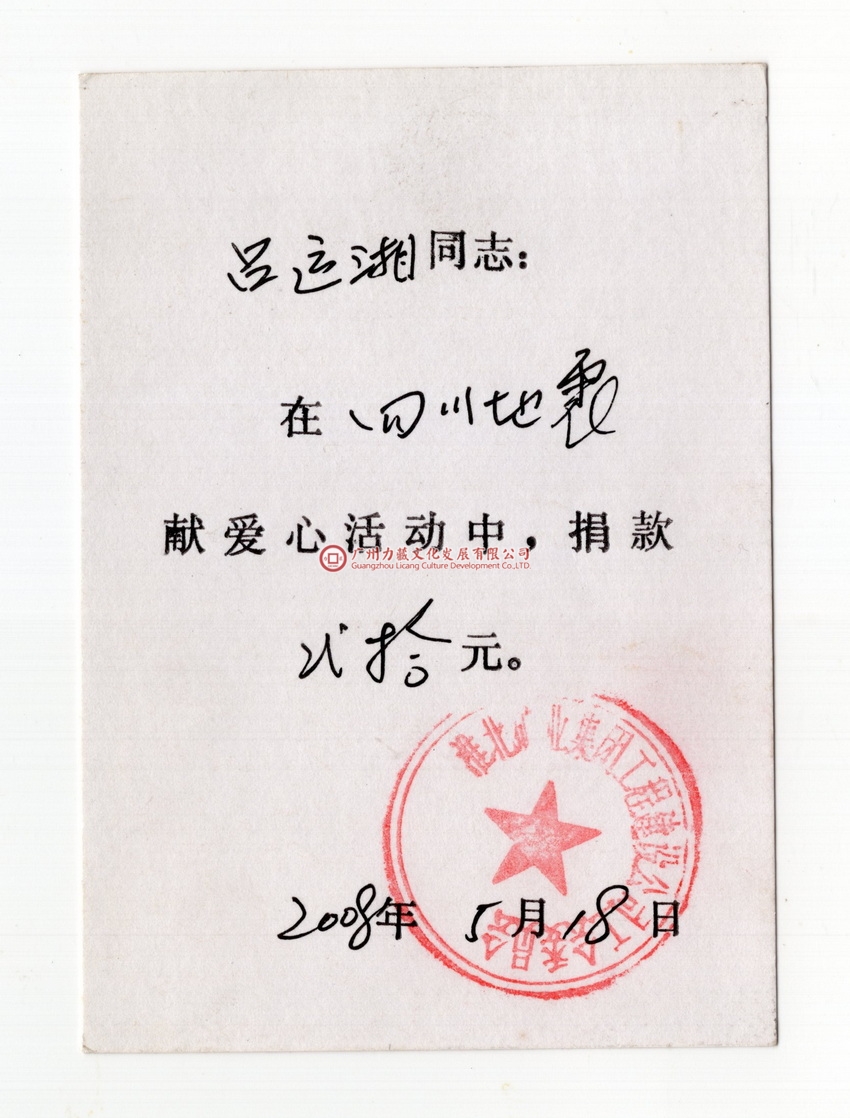 吕运湘同志：
在四川地震
献爱心活动中，捐款
广州力藏文化发展有限公司
Guangzhou Licang Culture Development Co.,LTD.
贰拾元。
淮北矿业集团工程建设公司工会委员会
2008年 5月18日